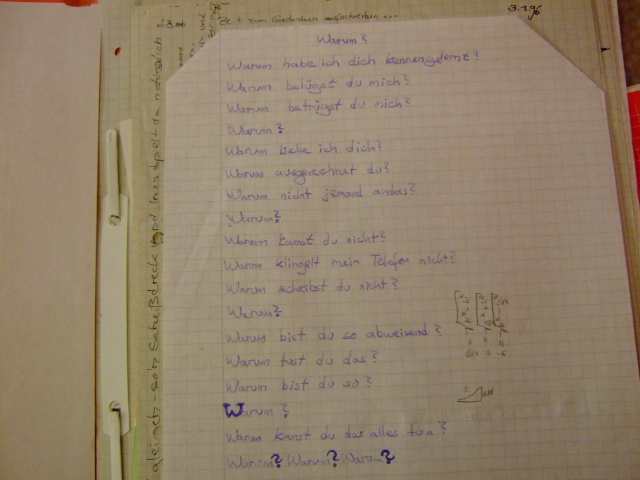 zum aufschreiben ...
3.1.96
Warum?
Warum habe ich dich kennengelernt?
Warum belügst du mich?
Warum betrügst du mich?
Warum?
Warum liebe ich dich?
Warum ausgerechnet du?
Warum nicht jemand andres?
Warum?
Warum kannst du nicht?
Warum klingelt mein Telefon nicht?
Warum schreibst du nicht?
Warum?
Warum bist du so abweisend?
Warum tust du das?
Warum bist du so?
Warum?
Warum kannst du das alles tun?
Warum? Warum? Warum?